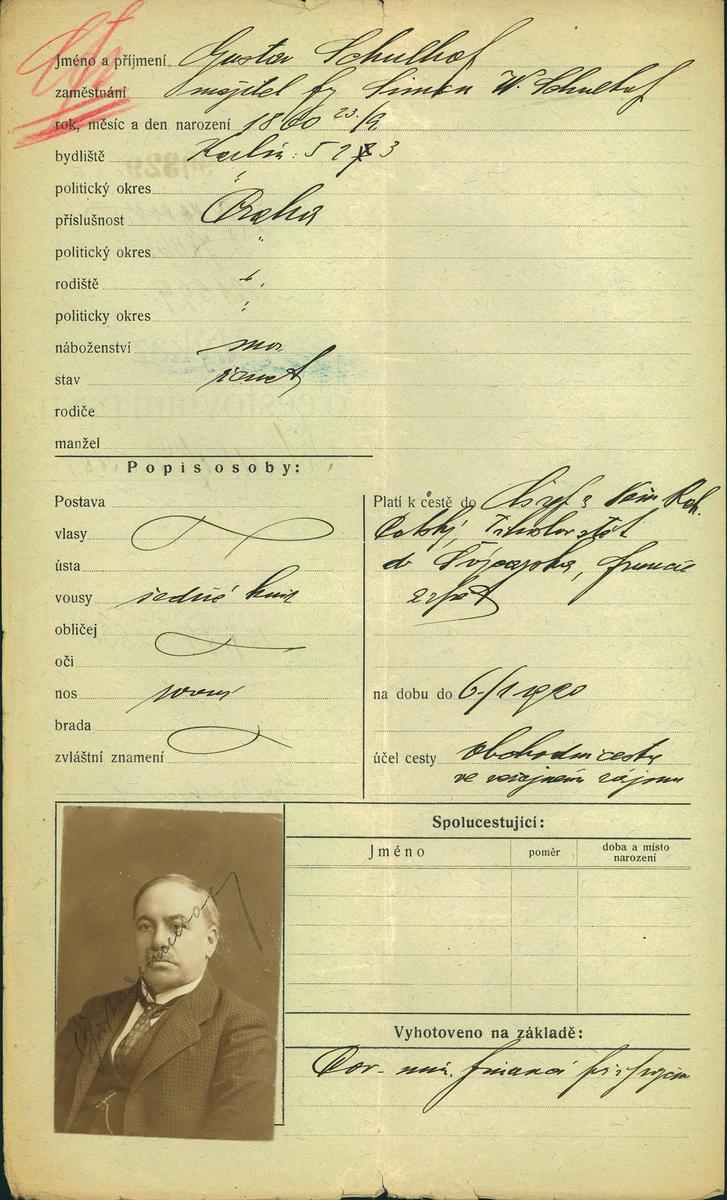 Jméno a příjmení Gustav Schulhof
zaměstnání majitel fy Simon W. Schulhof
rok, měsíc a den narození 1860 23/9
bydliště Karlín: 52 3
politický okres "
příslušnost Praha
politický okres "
rodiště "
politicky okres "
náboženství mos.
stav ženat
rodiče
manžel
Popis osoby:
Postava
vlasy
ústa
vousy šedivé knír
obličej
oči
nos rovný
brada
zvláštní znamení
Platí k cestě do
do Švýcarska, Francie
zpět
na dobu do 6./1 1920
účel cesty obchodní cesta
ve veřejném zájmu
Spolucestující:
Jméno
poměr
doba a místo narození
Vyhotoveno na základě:
Pov. min. financí